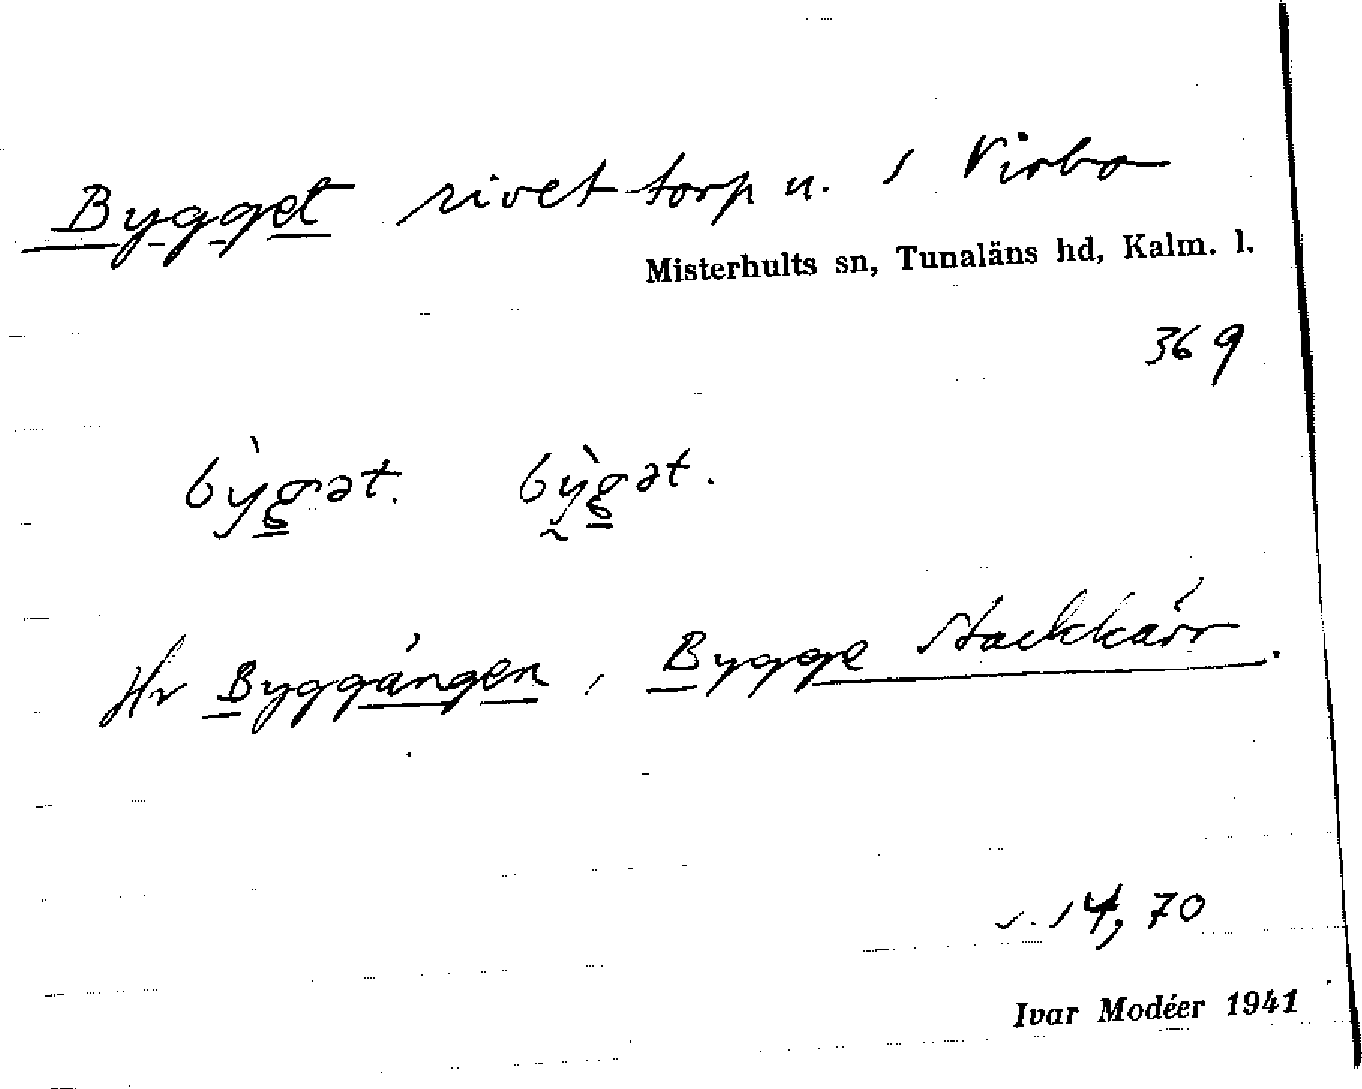 Bygget rivet torp u. s Virbo
Misterhults sn, Tunaläns hd, Kalm. l.
369
by̆̀gət. bỳ̰gət.
Hr Byggängen, Bygge Stackkärr.
s. 14, 70
Ivar Modéer 1941